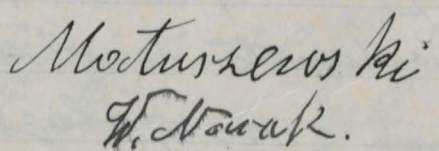 Matuszewski
W. Nowak.